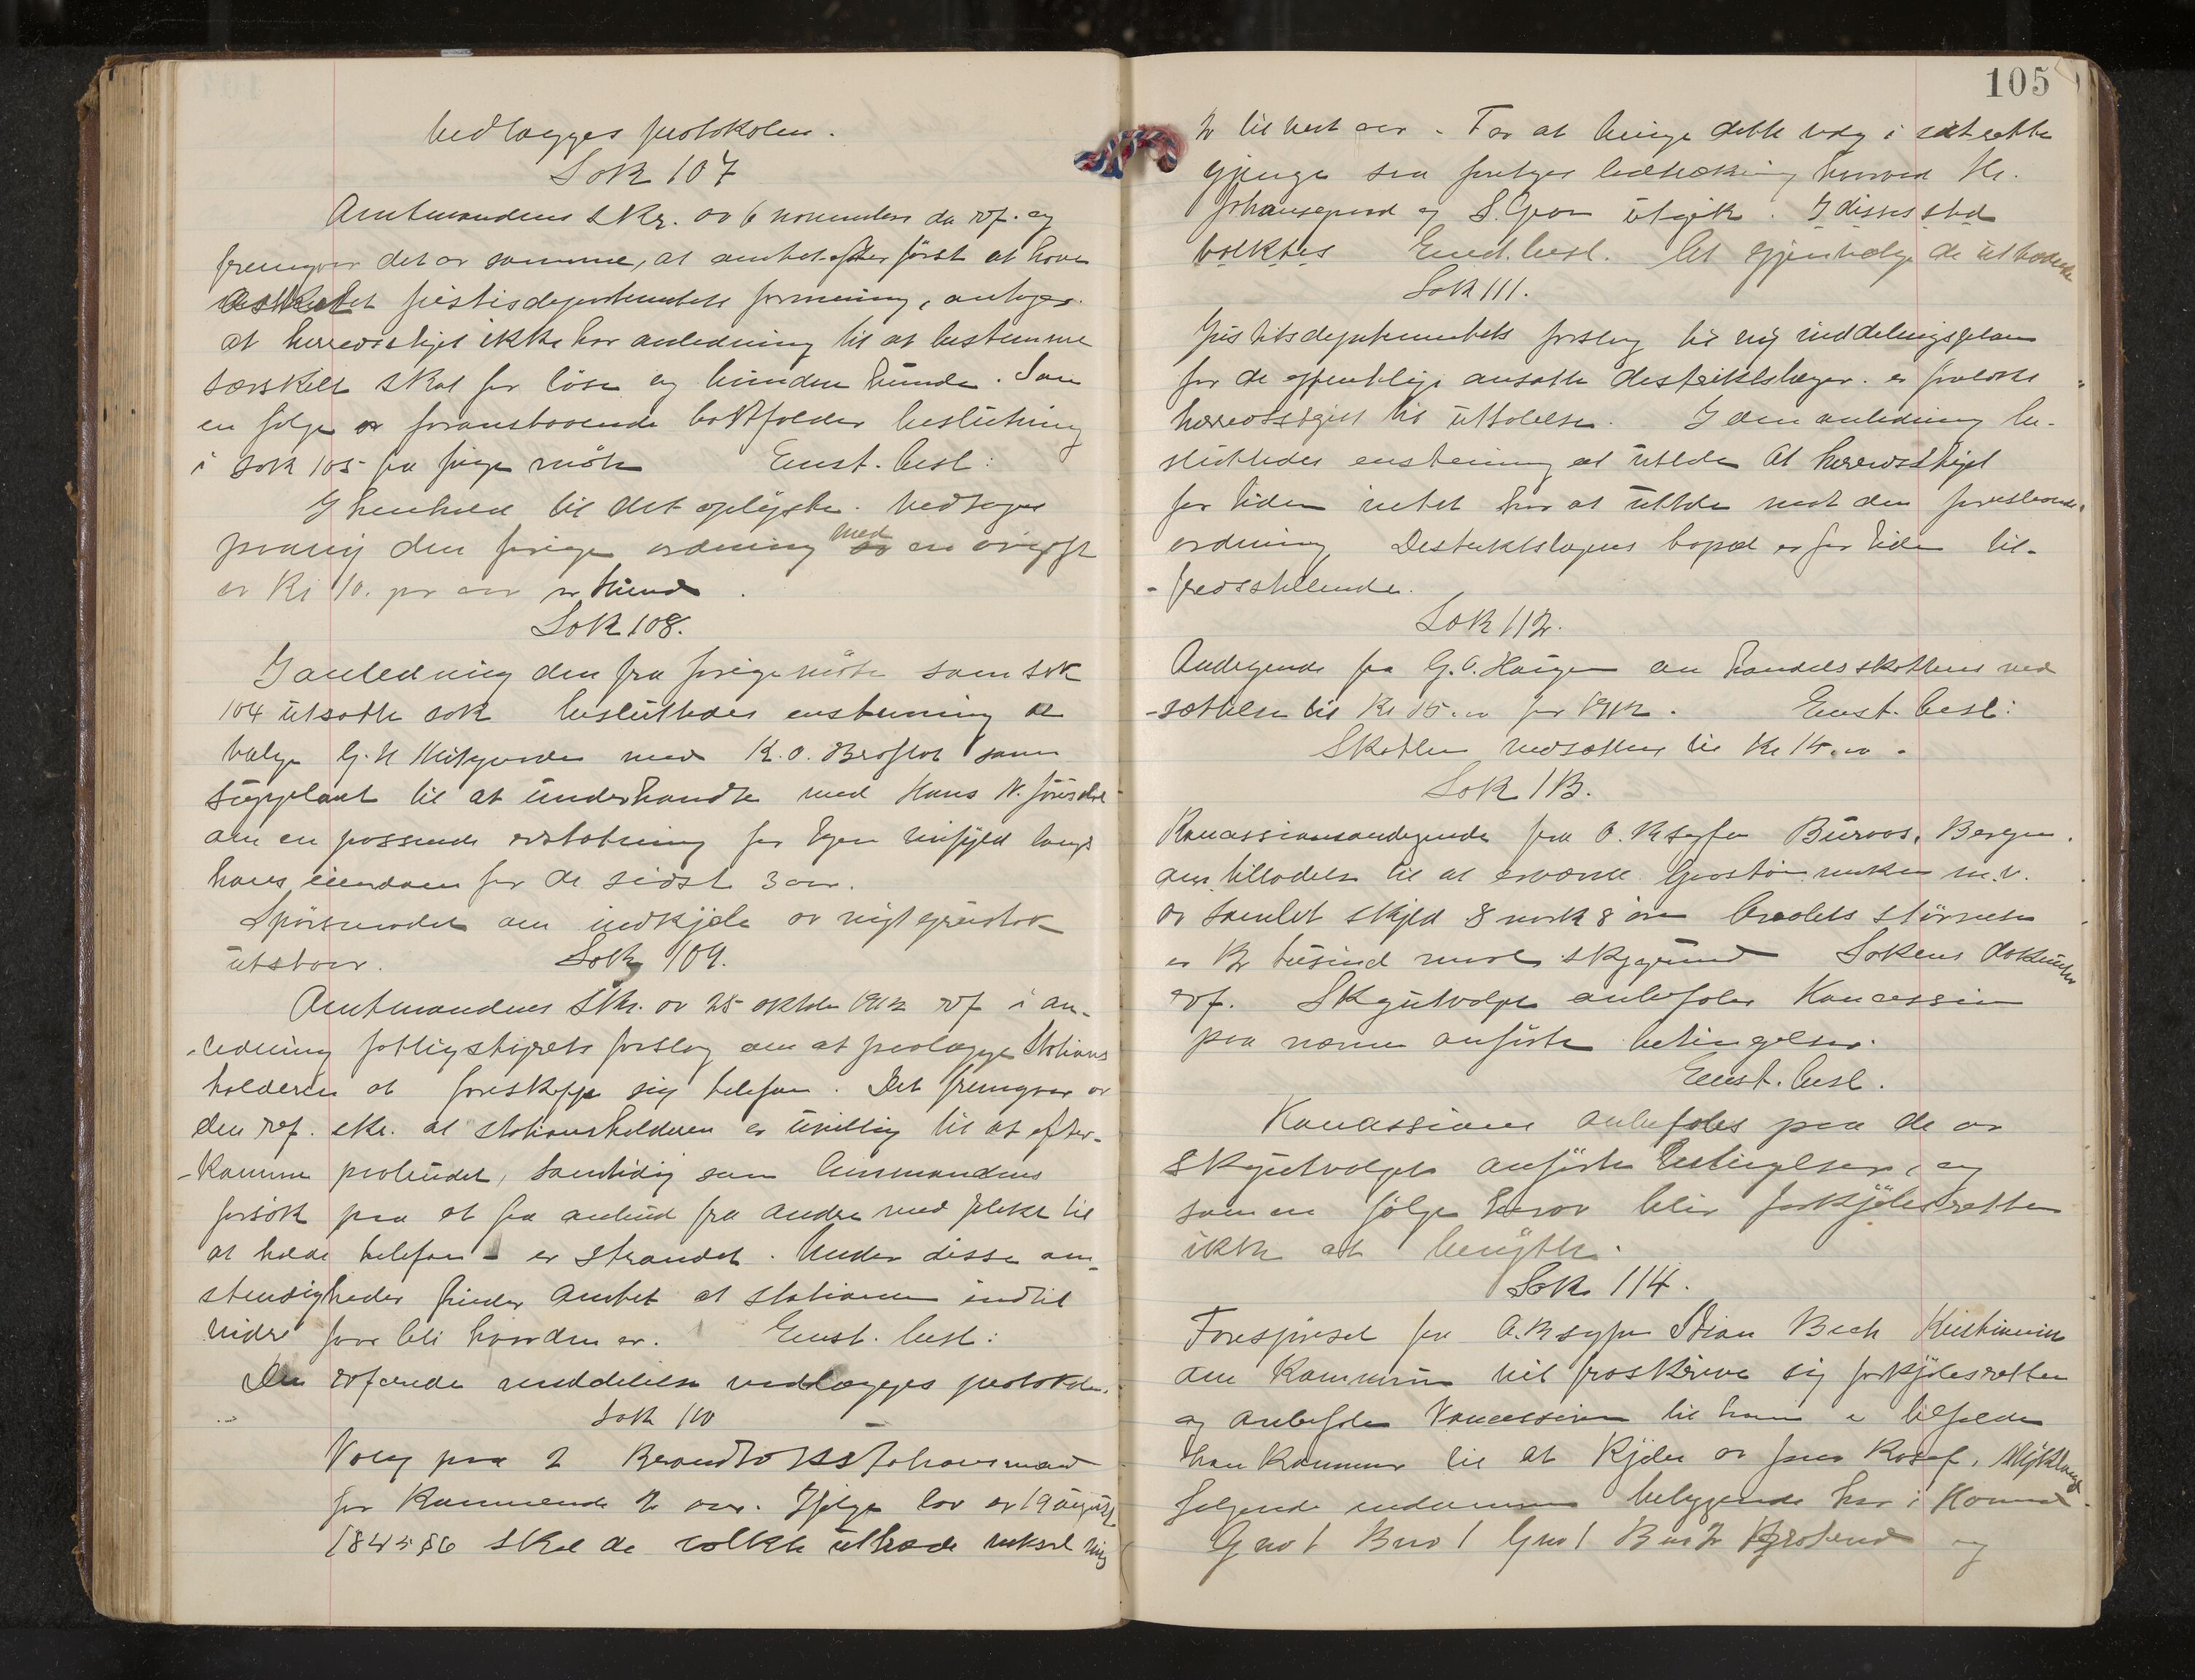 vedlægges protokolen.
Sak 107
Amtmandens skr. av 6 november da ref. og
fremgaar det av samme, at amtet efter först at have
justisdepartementets formening, antager
at herredsstyret ikke har anledning til at bestemme
særskilt skat for löse og bundne hunde. Som
en følge av foranstaaende bortfalder beslutning
i sak 105 fra forrige möte Enst. besl:
I henhold til det oplyste vedtages
den forrige ordning med en avgift
av Kr 10. pr aar pr hund.
Sak 108.
I anledning den fra forrige möte som sak
104 utsatte sak besluttedes enstemmig at
vælge G. N med K. O. som
supplant til at underhandle med Hans N.
om en passende erstatning for langs
hans eiendom for de sidste 3 aar.
Spörsmaalet om indkjöb av nyt
utstaar. Sak 109.
Amtmandens Skr. av 25 oktober 1912 ref i an-
-ledning fattigstyrets forslag om at paalægge Stations
holderen at forskaffe sig telefon. Det fremgaar av
den ref. skr. at stationsholderen er uvillig til at efter-
-komme paabudet, samtidig som lensmandens
forsök paa at faa anbud fra andre med plikt til
at holde telefon - er strandet. Under disse om-
stendigheder finder Amtet at stationen indtil
videre faar bli hvor den er. Enst. besl:
Den refererede meddelelse vedlægges protokolen.
Sak 110
Valg paa 2 Brandtakstationsmænd
for kommende 2 aar. Ifölge lov av 19 august
1845 § 6 skal de valgte uttræde veksel vis
105
2 til hvert aar. For at bringe dette valg i sit rette
gjænge saa foretoges lodtrækning hvorved Hr.
Johansgaard og S. Groven utgik. I disses sted
valktes Enst. besl. At gjenvælge de uttrædende
Sak 111.
Justitsdepartementets forslag til ny inddelingsplan
for de offentlige ansatte distriktslæger er forelagt
herredsstyret til uttalelse. I den anledning be-
sluttedes enstemmig at uttale At herredsstyret
for tiden intet har at uttale mot den foreslaaede
ordning Distriktslægens bopæl er for tiden til-
-fredsstillende.
Sak 112.
Andragende fra G. O. Haugen om handelsskattens ned
-sættelse til Kr 15.00 for 1912. Enst. besl:
Skatten nedsættes til Kr 15.00.
Sak 113.
Koncessionsandragende fra O.R sagfør Buroos, Bergen.
om tilladelse til at erverve m.v.
av samlet skyld 8 mark 8 öre Arealets störrelse
er tusind maal skoggrund Sakens dokumenter
ref. Skogutvalget anbefaler Koncession
paa nærmere anförte betingelser.
Enst. besl.
Koncessionen anbefales paa de av
skogutvalget anförte betingelser, og
som en fölge herav blir forkjöbsretten
ikke at benytte.
Sak 114.
Forespörsel fra O.R sagfør Stian Bech Kristiania
om Kommunen vil fraskrive sig forkjöbsretten
og anbefale Koncession til ham i tilfælde
han kommer til at Kjöbe av
følgende eiendomme beliggende her i Kommunen
Gno 1 Bno 1 Gno 1 Bno 2 og